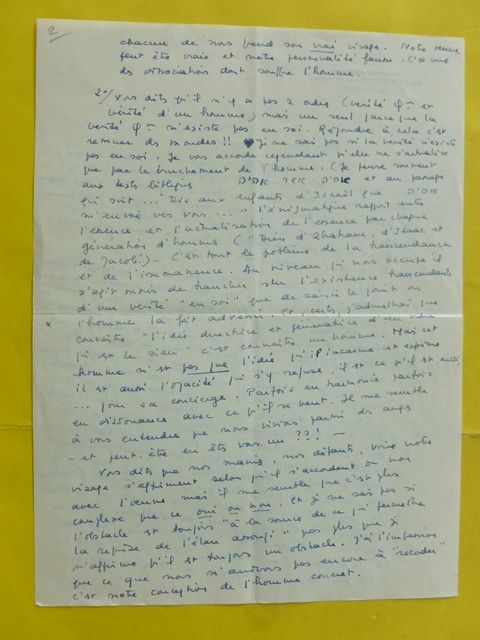 2
chacune de nous prend son vrai visage. Notre oeuvre
peut être vraie et notre personnalité fausse. C'est une
des dissociations dont souffre l'homme.
2°/ Vous dites qu'il n'y a pas 2 ordres (vérité φ et
vérité d'un homme) mais un seul parce que la
vérité φ n'existe pas en soi. Répondre à cela c'est
remuer des mondes!! Je ne sais pas si la vérité n'existe
pas en soi. Je vous accorde cependant qu'elle ne s'actualise
que par le truchement de l'homme. (Je pense souvent
aux textes bibliques אהיה אשר אהיה et au passage
qui suit ... "Dis aux enfants d'Israël que אהיה
m'envoie vers vous ... " l'énigmatique rapport entre
l'essence et l'actualisation de l'essence par chaque
génération d'hommes ("Dieu d'Abraham, d'Isaac et
de Jacob") - C'est tout le problème de la transcendance
et de l'immanence. Au niveau qui nous occupe il
s'agit moins de trancher sur l'existence transcendante
d'une vérité "en soi" que de saisir le point où
l'homme la fait advenir. Et certes, j'admettrai que
connaître "l'idée directrice et génératrice d'un
qui est le sien" c'est connaître un homme. Mais cet
homme n'est pas que l'idée qu'il incarne et exprime
il est aussi l'opacité qui s'y refuse, il est ce qu'il est
... pour sa concierge. Parfois en harmonie parfois
en dissonance avec ce qu'il se veut. Il me semble
à vous entendre que nous vivions parmi des anges
- et peut-être en êtes vous un ??! -
Vous dites que nos manies, nos défauts, voire notre
visage s'affirment selon qu'ils s'accordent ou non
avec l'oeuvre mais il me semble que c'est plus
complexe que ce oui ou non. Et je ne sais pas si
l'obstacle est toujours "à la source de ce qui permettra
la reprise de l'élan assoupi" pas plus que je
n'affirme qu'il est toujours un obstacle. J'ai l'impression
que ce que nous n'arrivons pas encore à "accorder"
c'est notre conception de l'homme concret.